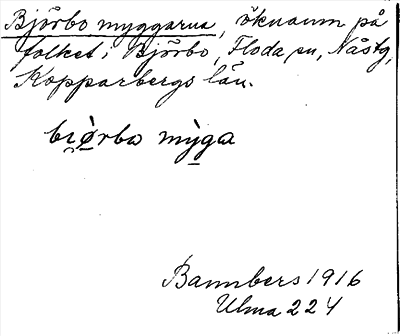 Björbo myggarna, öknamn på
folket i Björbo, Floda sn, Nåstg,
Kopparbergs län.
bi̯ö̀rba mỳga
Bannbers 1916
Ulma 224